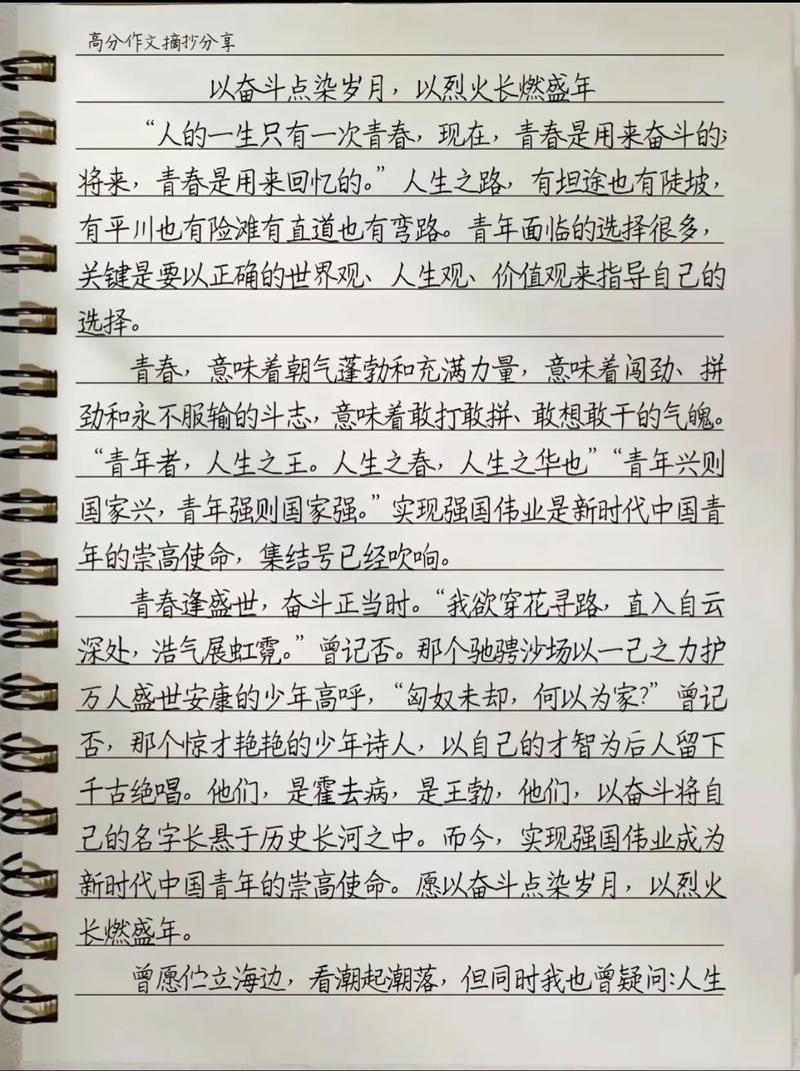 高分作文摘抄分享
以奋斗点染岁月，以烈火长燃盛年
“人的一生只有一次青春，现在，青春是用来奋斗的；
将来，青春是用来回忆的。”人生之路，有坦途也有陡坡，
有平川也有险滩有直道也有弯路。青年面临的选择很多，
关键是要以正确的世界观、人生观、价值观来指导自己的
选择。
青春，意味着朝气蓬勃和充满力量，意味着闯劲、拼
劲和永不服输的斗志，意味着敢打敢拼、敢想敢干的气魄。
“青年者，人生之王。人生之春，人生之华也”“青年兴则
国家兴，青年强则国家强。”实现强国伟业是新时代中国青
年的崇高使命，集结号已经吹响。
青春逢盛世，奋斗正当时。“我欲穿花寻路，直入自云
深处，浩气展虹霓。”曾记否。那个驰骋沙场以一己之力护
万人盛世安康的少年高呼，“匈奴未却，何以为家？”曾记
否，那个惊才艳艳的少年诗人，以自己的才智为后人留下
千古绝唱。他们，是霍去病，是王勃，他们，以奋斗将自
己的名字长悬于历史长河之中。而今，实现强国伟业成为
新时代中国青年的崇高使命。愿以奋斗点染岁月，以烈火
长燃盛年。
曾愿伫立海边，看潮起潮落，但同时我也曾疑问：人生